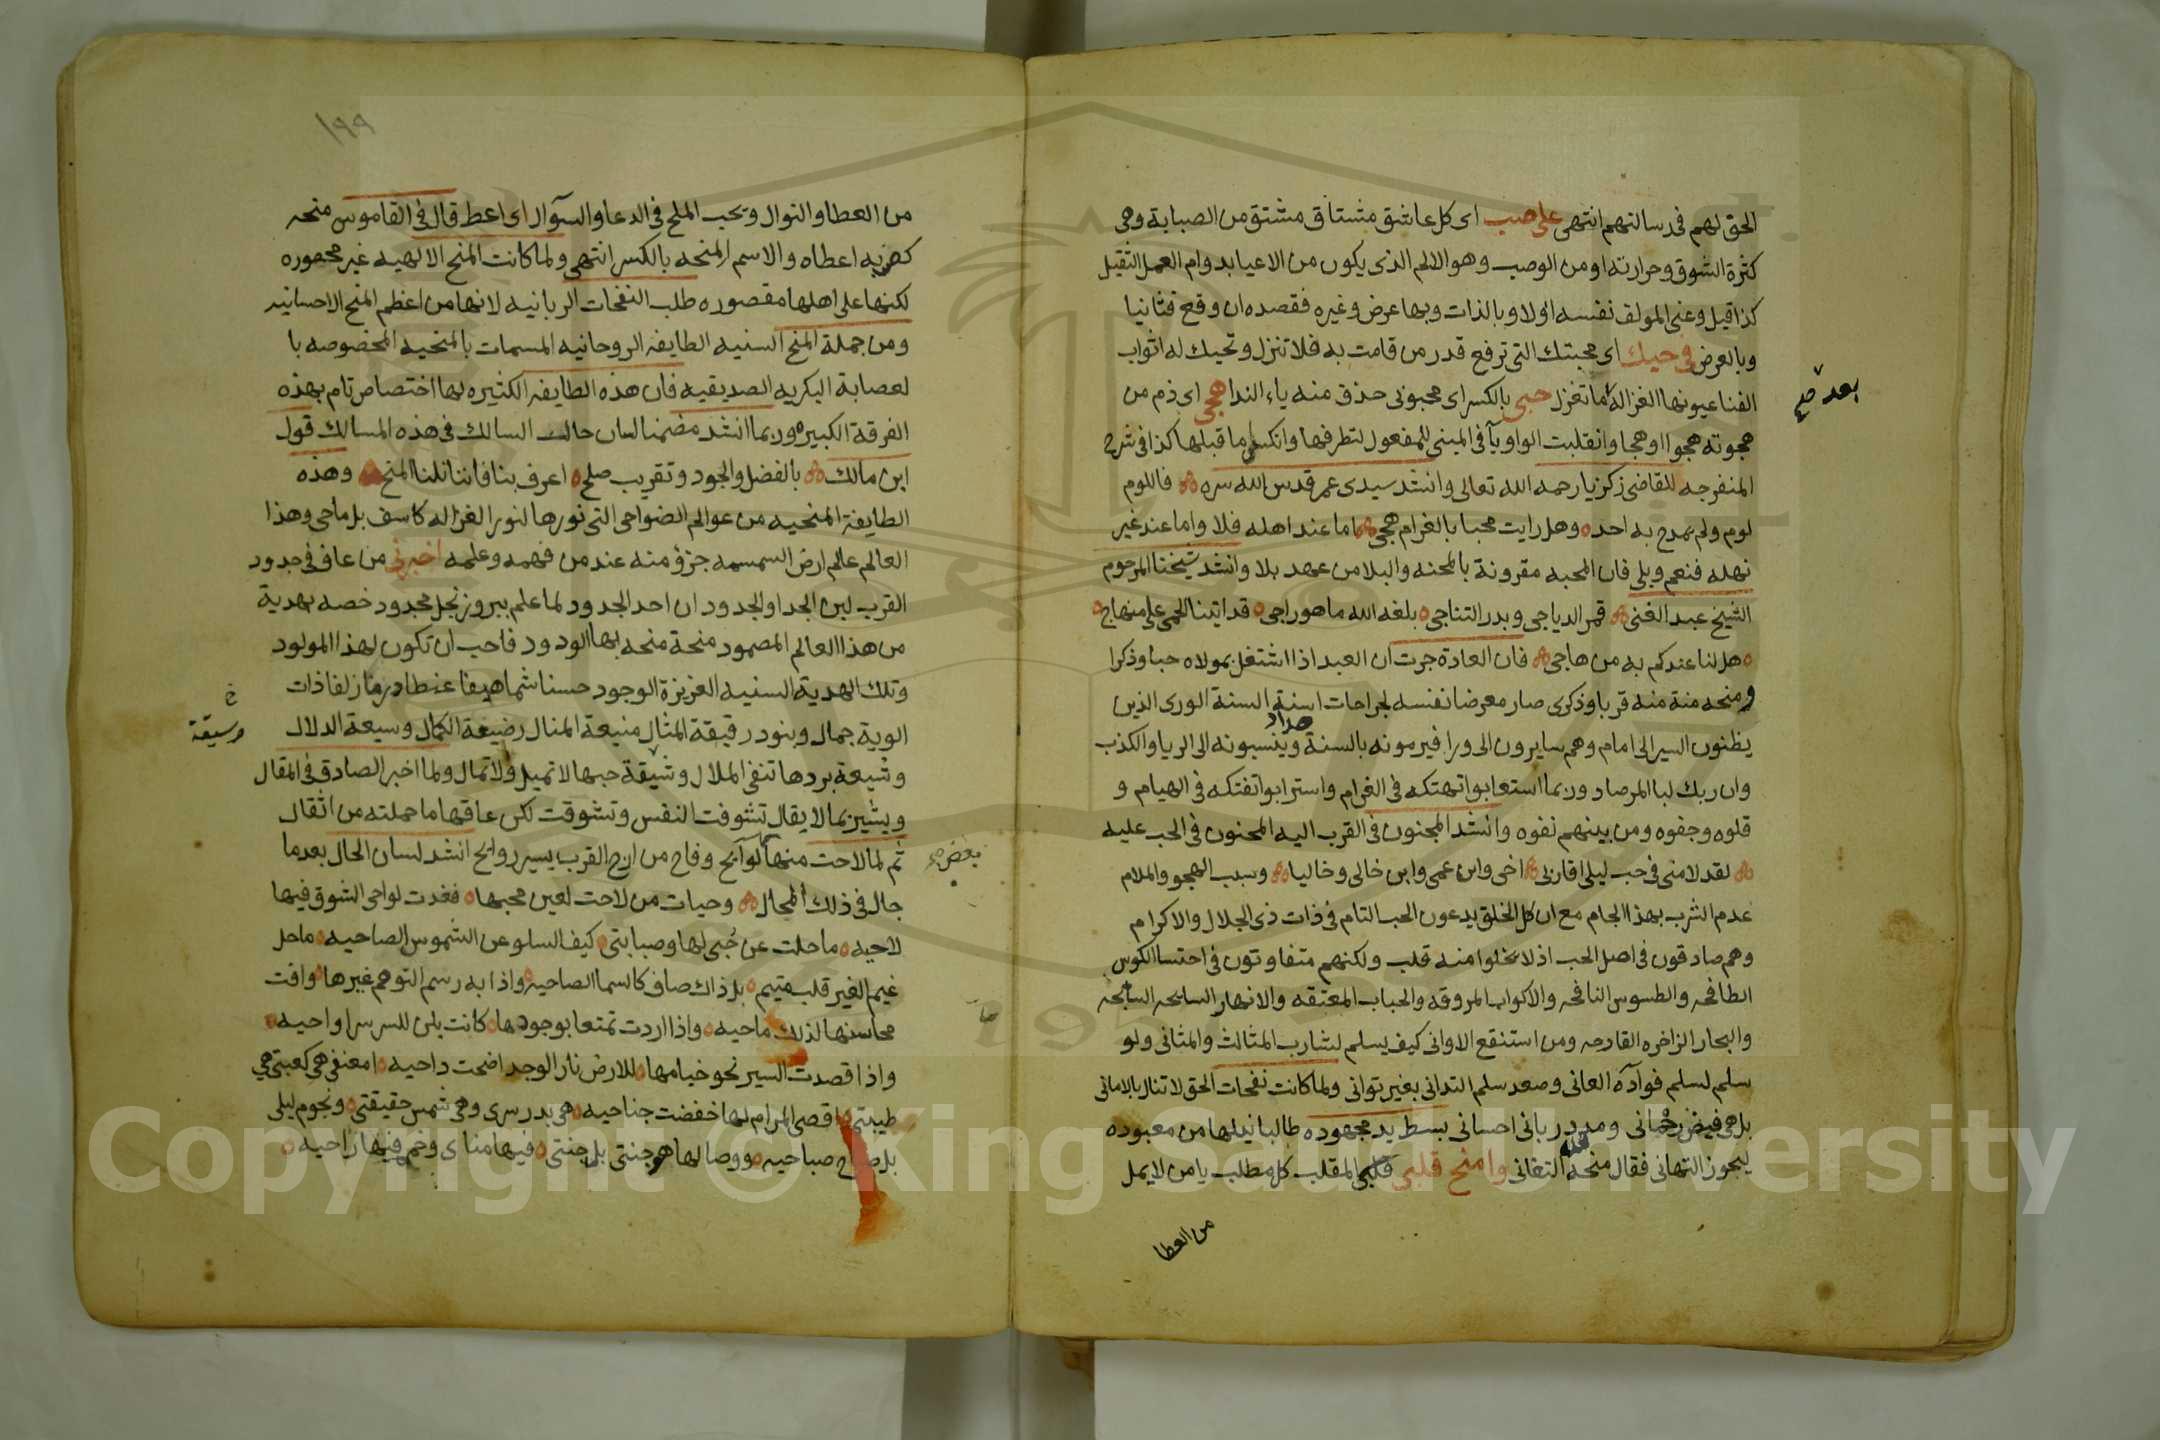 الحق لهم فى رسالتهم انتهى على صب اى كل عاشق مشتاق مشتق من الصبابة وهى
كثرة الشوق وحرارته او من الوصب وهو الالم الذى يكون من الاعيا بدوام العمل الثقيل
كذا قيل وعنى المولف نفسه اولا وبالذات وبها عرض وغيره فقصده ان وقع فثانيا
وبالعرض فى حبك اى محبتك التى ترفع قدر من قامت به فلا تنزل وتحيك له اثواب
بعد صح
الفنا عيونها الغزاله ما تغزل حبى بالكسر اى محبوبى حذف منه ياء الندا هجى اى ذم من
هجوته هجوا او هجا وانقلبت الواو يآ فى المبنى للمفعول لتطرفها وانكسار ما قبلها كذا فى شرح
المنفرجه للقاضى زكريا رحمه الله تعالى وانشد سيدى عمر قدس الله سره فاللوم
لوم ولم يمدح به احد وهل رايت محبا بالغرام هجى اما عند اهله فلا واما عند غير
نهله فنعم وبلى فان المحبه مقرونة بالمحنه والبلا من عهد بلا وانشد شيخنا المرحوم
الشيخ عبد الغنى قمر الدياجى وبدر التناجى بلغه الله ما هو راجى قد اتينا الحمى على منهاج
هل لنا عندكم به من هاجى فان العادة جرت ان العبد اذا اشتغل بمولاه حبا وذكرا
ومنحه منة منه قربا وذكرى صار معرضا نفسه لجراحات اسنة السنة الورى الذين
حداد
يظنون السير الى امام وهم سايرون الى ورا فيرمونه بالسنة وينسبونه الى الريا والكذب
وان ربك لبا المرصاد وربما استعابوا تهتكه فى الغرام واسترابوا تفتكه فى الهيام و
قلوه وجفوه ومن بينهم نفوه وانشد المجنون فى القرب اليه المحنون فى الحب عليه
لقد لامنى فى حب ليلى اقاربى اخى وابن عمى وابن خالى وخاليا وسبب الهجو والملام
عدم الشرب بهذا الجام مع ان كل الخلق يدعون الحب التام فى ذات ذى الجلال والاكرام
وهم صادقون فى اصل الحب اذ لا يخلوا منه قلب ولكنهم متفاوتون فى احتسا الكوس
الطافحه والطسوس النافحه والاكواب المروقه والحباب المعتقه والانهار السايحه السابحه
والبحار الزاخره القادحه ومن استنقع الاوانى كيف يسلم لشارب المثالث والمثانى ولو
سلم لسلم فوآده العانى وصعد سلم التدانى بغير توانى ولما كانت نفحات الحق لا تنال بالامانى
بل هى فيض رحمانى ومدد ربانى احسانى بسط يد مجهوده طالبا نيلها من معبوده
ليحوز التهانى فقال منحه التفانى وامنح قلبى قلبى المقلب كل مطلب يا من لا يمل
من العطا
١٩٩
من العطا والنوال ويحب الملح فى الدعا والسوال اى اعط قال فى القاموس منحه
كضربه اعطاه والاسم المنحه بالكسر انتهى ولما كانت المنح الالهيه غير محصوره
لكنها على اهلها مقصوره طلب النفحات الربانيه لانها من اعظم المنح الاحسانيه
ومن جملة المنح السنيه الطايفه الروحانيه المسمات بالمنحيه المخصوصه با
لعصابة البكريه الصديقيه فان هذه الطايفه الكثيره لها اختصاص تام بهذه
الفرقة الكبيره وربما انشد مضمنا لسان حالت السالك فى هذه المسالك قول
ابن مالك بالفضل والجود وتقريب صلح اعرف بنا فاننا نلنا المنح وهذه
الطايفة المنحيه من عوالم الضواحى التى نورها لنور الغزاله كاسف بل ماحى وهذا
العالم عالم ارض السمسمه جزؤ منه عند من فهمه وعلمه اخبرنى من عاف فى حدود
القرب لبن الجدا والجدود ان احد الجدود لما علم ببروز نجل مجدود خصه بهدية
من هذا العالم المصمود منحة منحه بها الودود فاحب ان تكون لهذا المولود
وتلك الهدية السنيه العزيزة الوجود حسنا شما هيفا عنطا درمازلفا ذات
خ وسيقة
الوية جمال وبنود رقيقة المثال منيعة المنال رضيعة الكمال وسيعة الدلال
وشيعة بردها تنفى الملال وشيقة حبها لا تميل ولا تمال ولما اخبر الصادق فى المقال
ويشير بما لا يقال تشوفت النفس وتشوقت لكن عاقها ما حملته من اثقال
بعض صح
ثم لما لاحت منها لوآيح وفاح من ارج القرب يسير روايح انشد لسان الحال بعد ما
جال فى ذلك المجال وحيات من لاحت لعين محبها فغدت لواحى الشوق فيها
لاحيه ما حلت عن حبى لها وصبابتى كيف السلو عن الشموس الصاحيه ما حل
غيم الغير قلب متيم بل ذاك صاف كالسما الصاحيه واذا به رسم التوهم غيرها وافت
محاسنها لذلك ماحيه واذا اردت تمتعا بوجودها كانت بلن للسر سرا واحيه
واذا قصدت السير نحو خيامها للارض نار الوجد اضحت داحيه امعنفى هى كعبتى هى
طيبتى اقصى المرام لها خفضت جناحيه هى بدر سرى وهى شمس حقيقتى ونجوم ليلى
بل صباحيه ووصالها هو جنتى بل جنتى فيها مناى وخمر فيها راحيه
Copyright © King Saud University